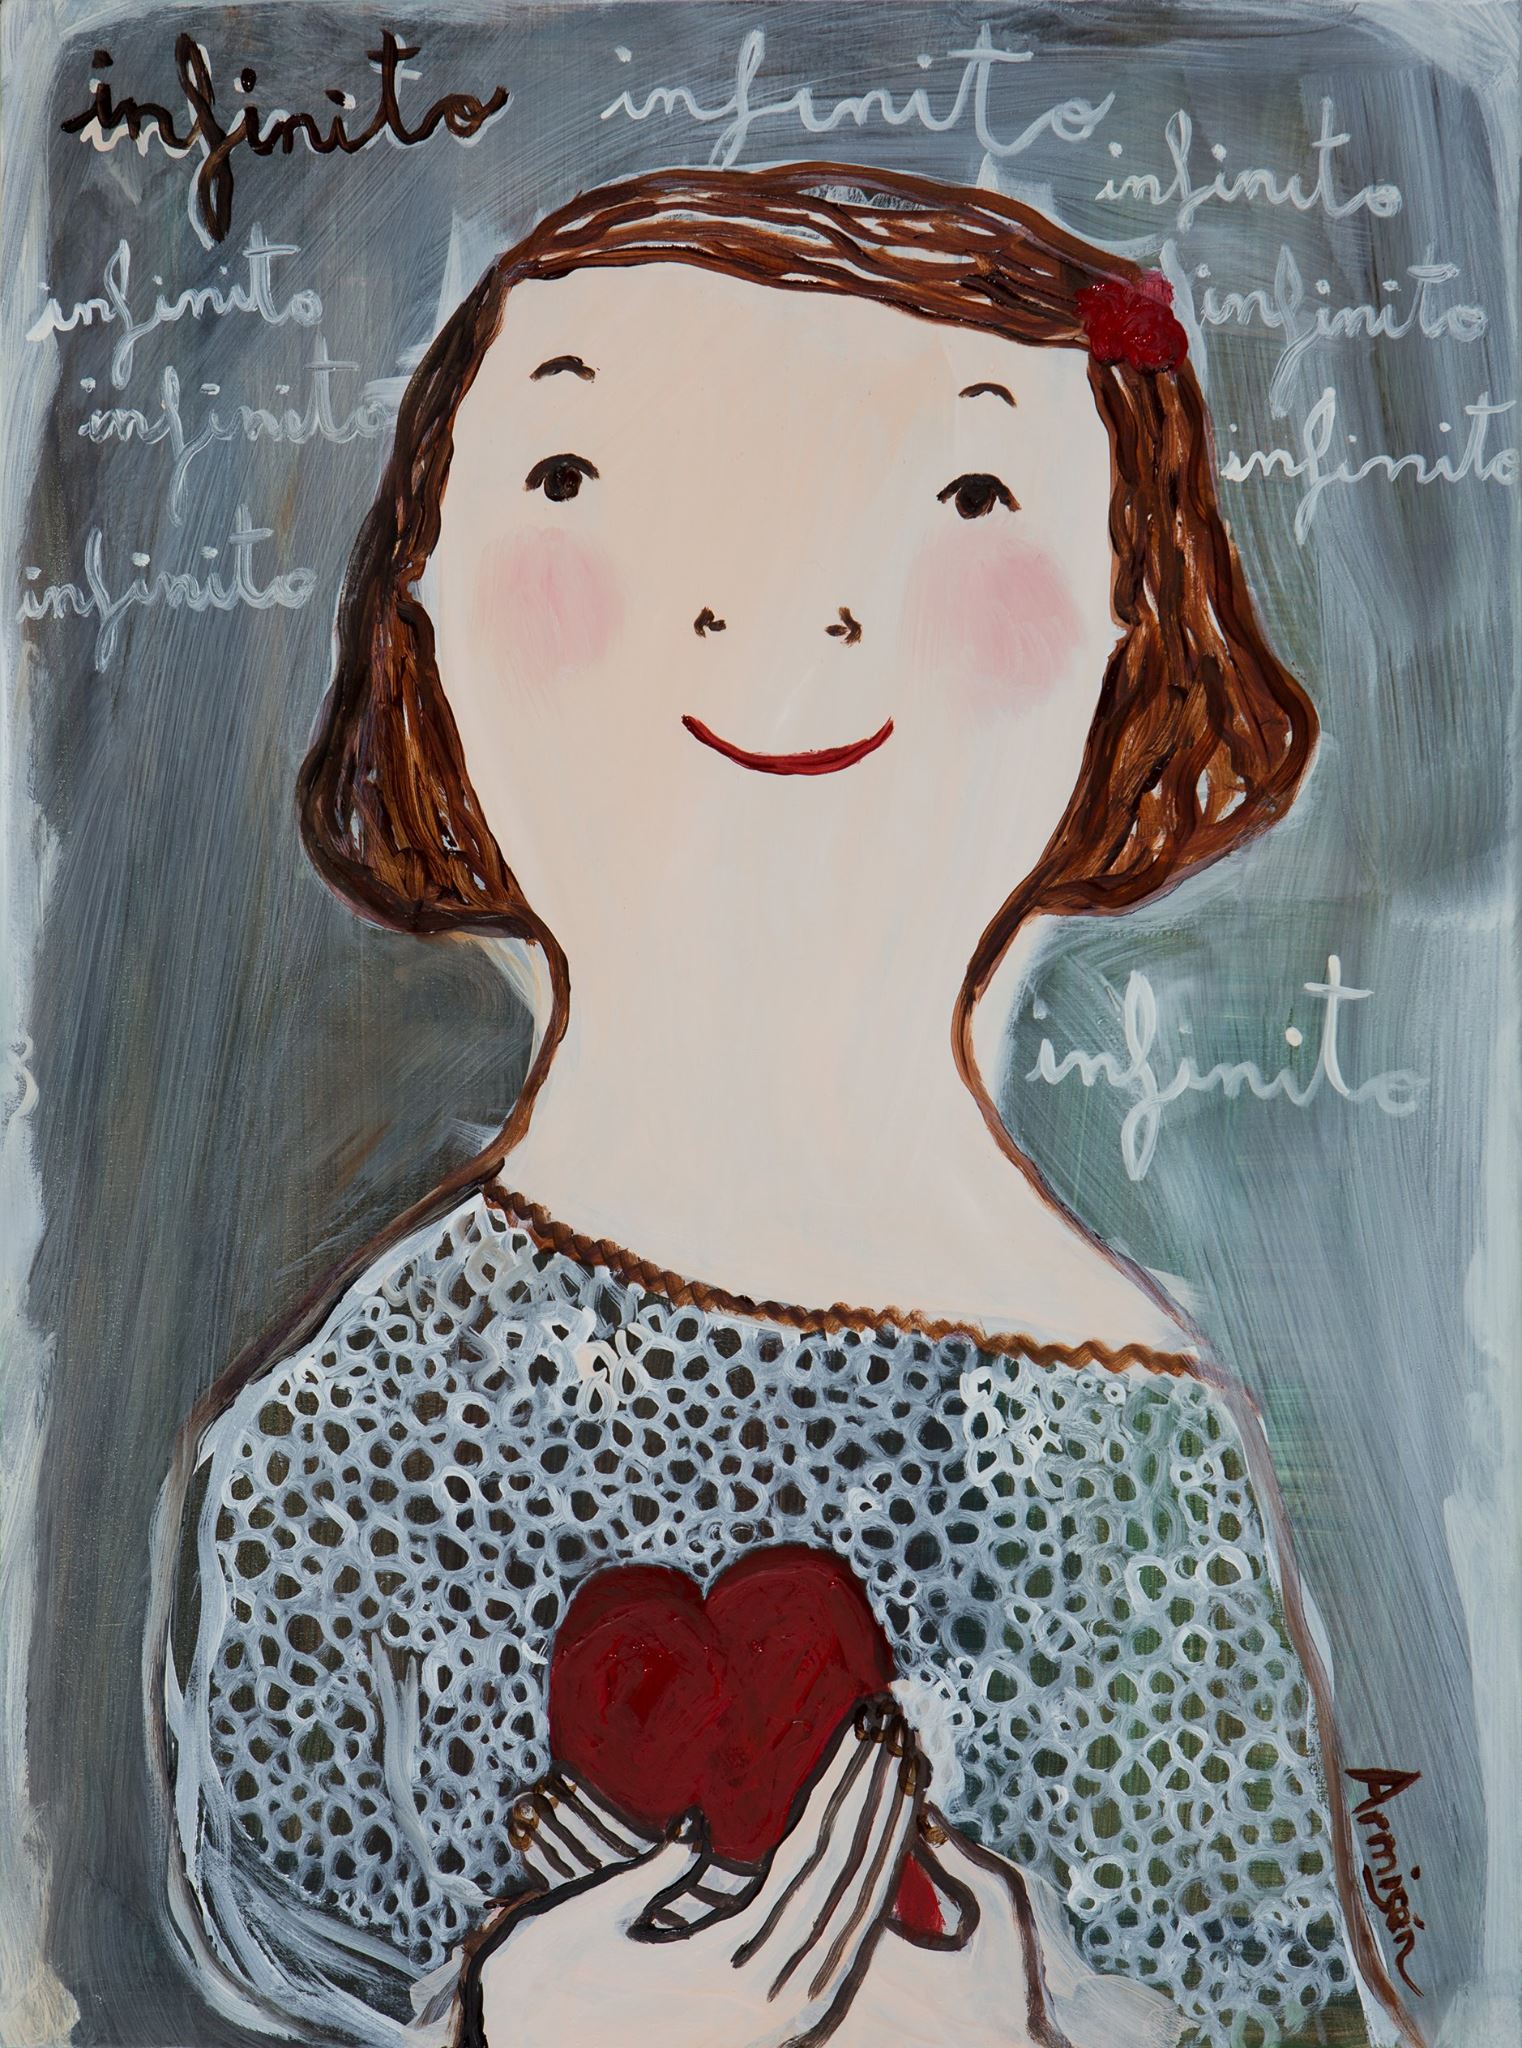 infinito
infinito
infinito
infinito
infinito
infinito
infinito
infinito
infinito
Armisén